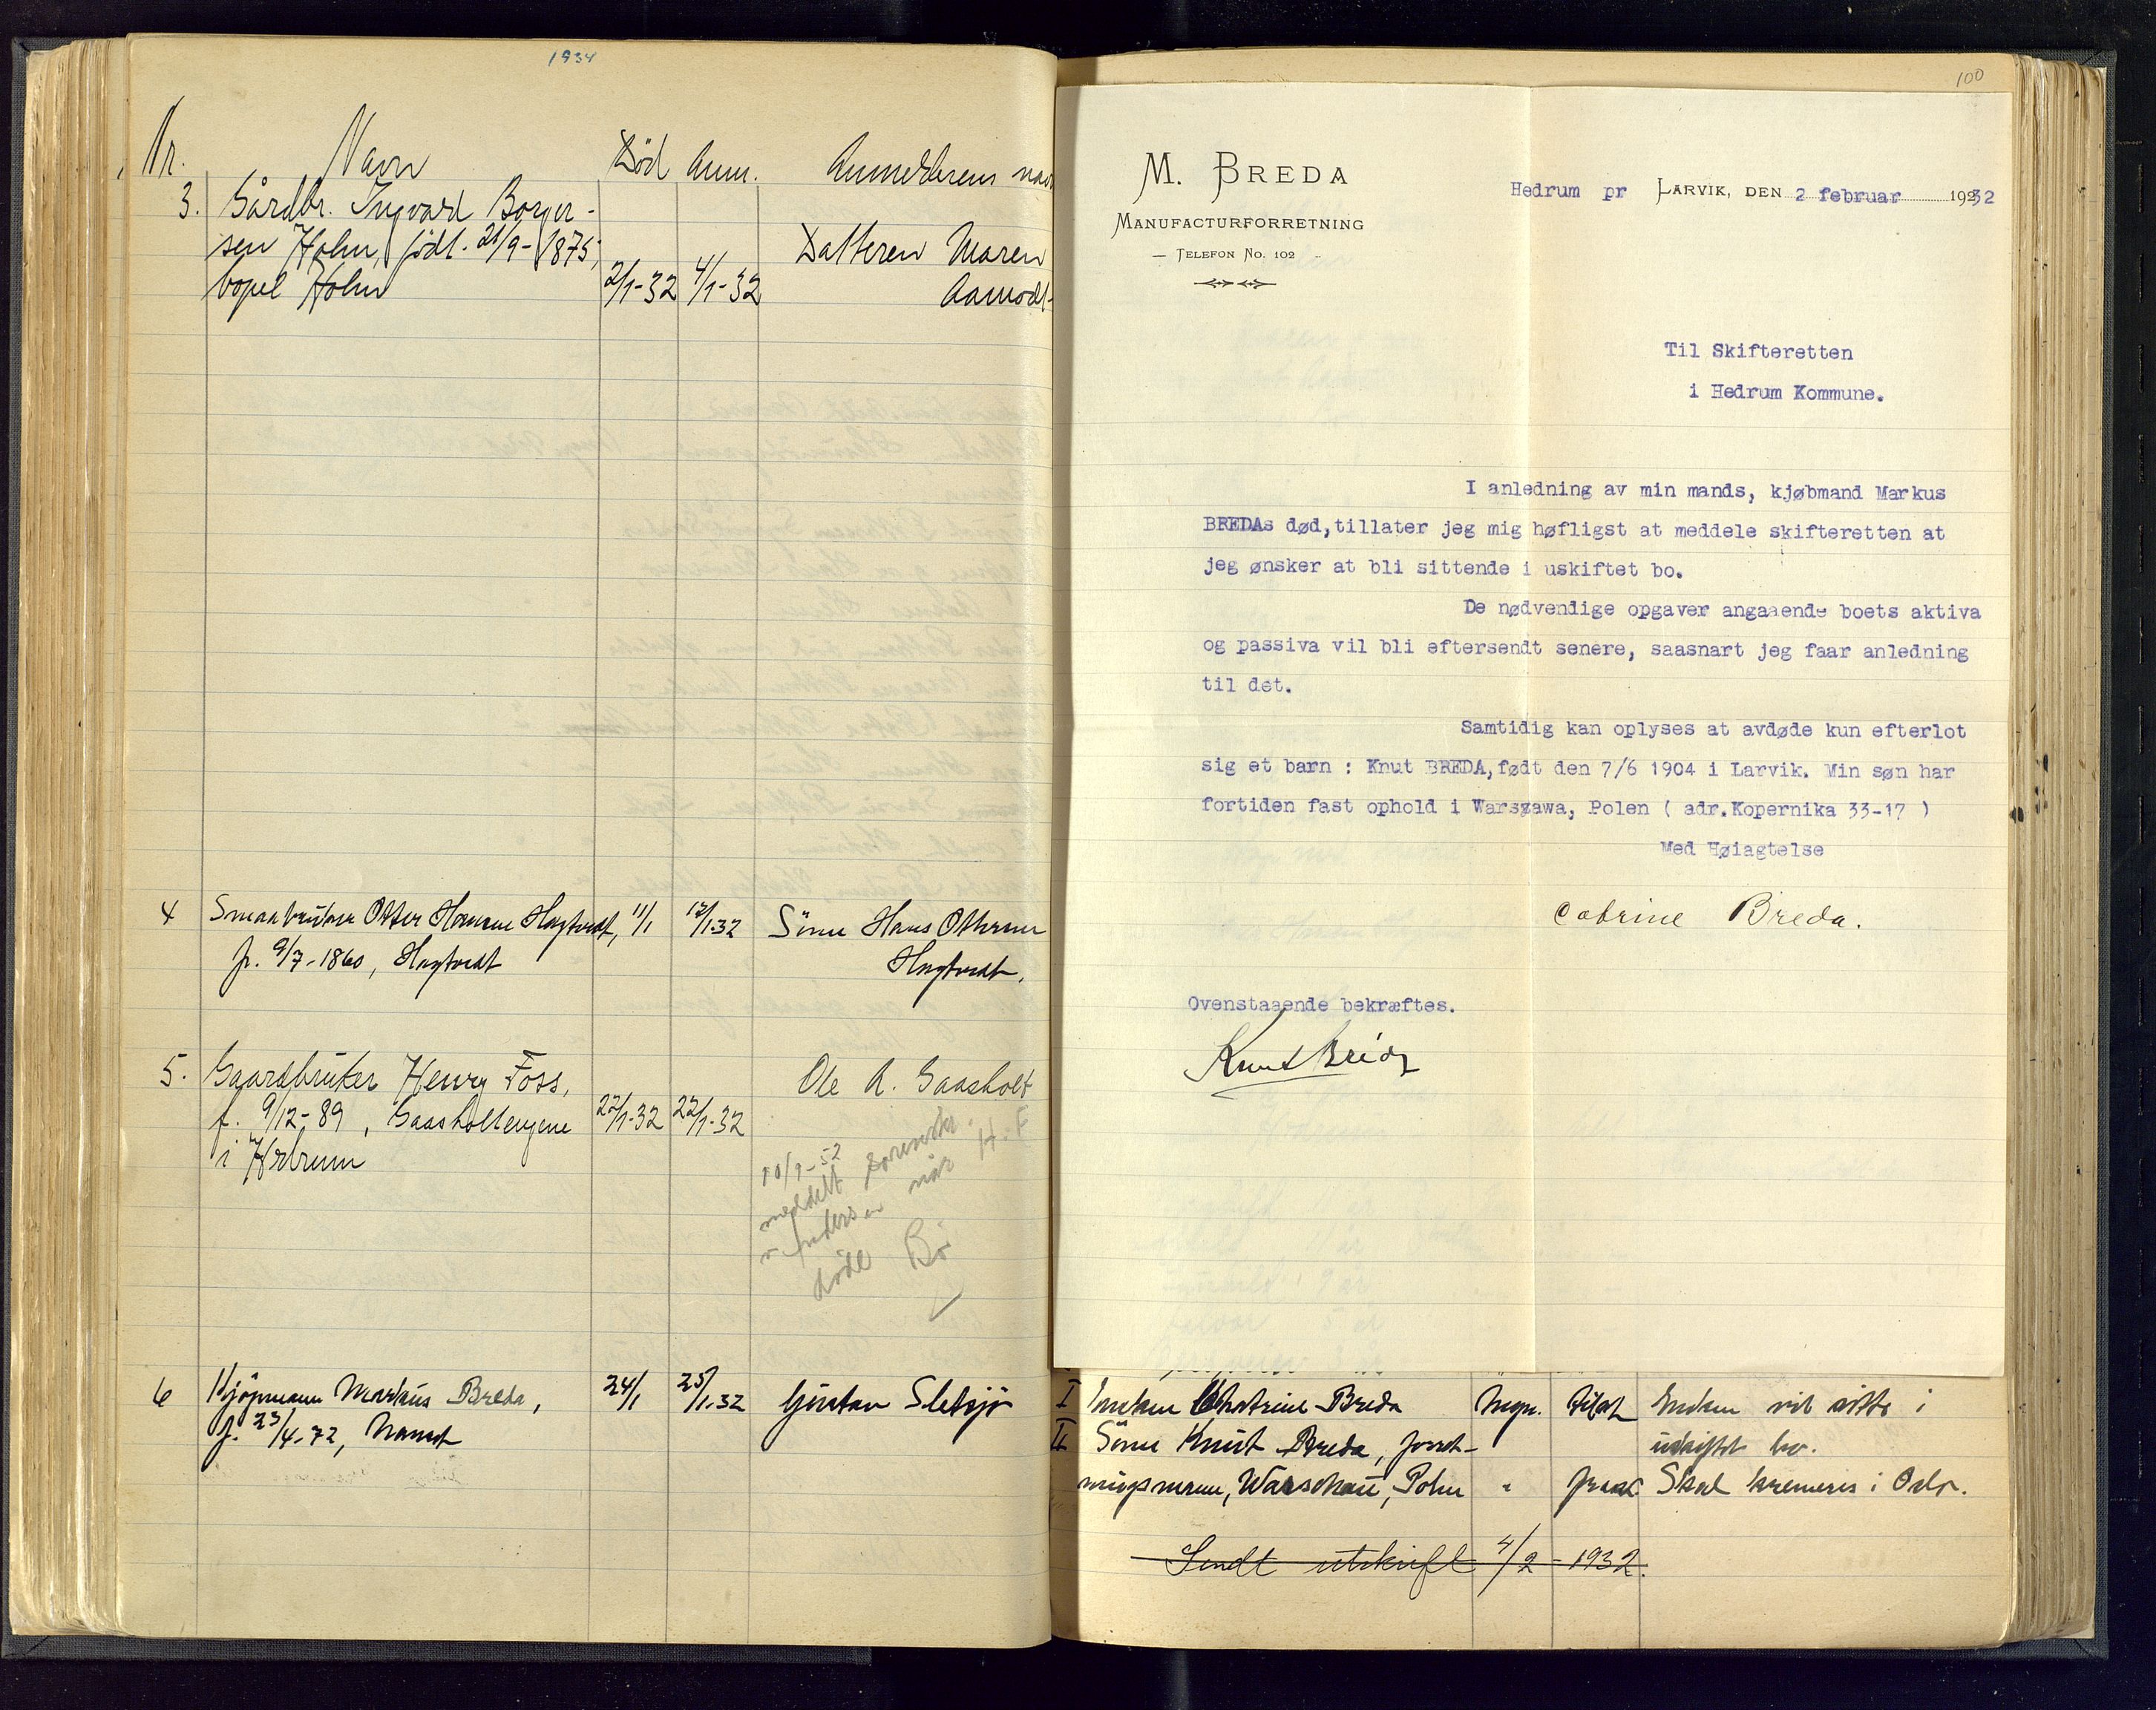 1934
Nr. Navn Död Anm. Anmelderens navn
3. Gårdbr. Ingvard Borger-
sen Holm, født. 21/9-1875,
bopel Holm 2/1-32 4/1-32 Datteren Maren
Aamodt
4 Smaabruker Otter Hansen Hagtvedt, 11/1 12/1-32 Sönn Hans Ottersen
f. 9/7-1860, Hagtvedt Hagtvedt.
5. Gaardbruker Henry Foss,
f. 9/12-89, Gaasholtengene 22/1-32 22/1-32 Ole A. Gaasholt
i Hedrum
10/9-52
meddelt
Andersen når H. F
döde Bö
6 Kjöpmann Markus Breda, 24/1 25/1-32 Gustav Sletsjö
f. 23/4-72, Nanset
100
M. BREDA
MANUFACTURFORRETNING
— TELEFON No. 102 -
Hedrum pr LARVIK, DEN 2 februar 1932
Til Skifteretten
i Hedrum Kommune.
I anledning av min mands, kjøbmand Markus
BREDAs død,tillater jeg mig høfligst at meddele skifteretten at
jeg ønsker at bli sittende i uskiftet bo.
De nødvendige opgaver angaaende boets aktiva
og passiva vil bli eftersendt senere, saasnart jeg faar anledning
til det.
Samtidig kan oplyses at avdøde kun efterlot
sig et barn : Knut BREDA,født den 7/6 1904 i Larvik. Min søn har
fortiden fast ophold i Warszawa, Polen ( adr.Kopernika 33-17 )
Med Høiagtelse
Catrine Breda.
Ovenstaaende bekræftes.
Knut Breda
I Enken Chatrine Breda Myn. tilst Enken vil sitte i
II Sönn Knut Breda, forret- uskiftet bo.
ningsmann, Warschau, Polen " frav Skal kremeres i Oslo.
Sendt utskrift 4/2-1932.